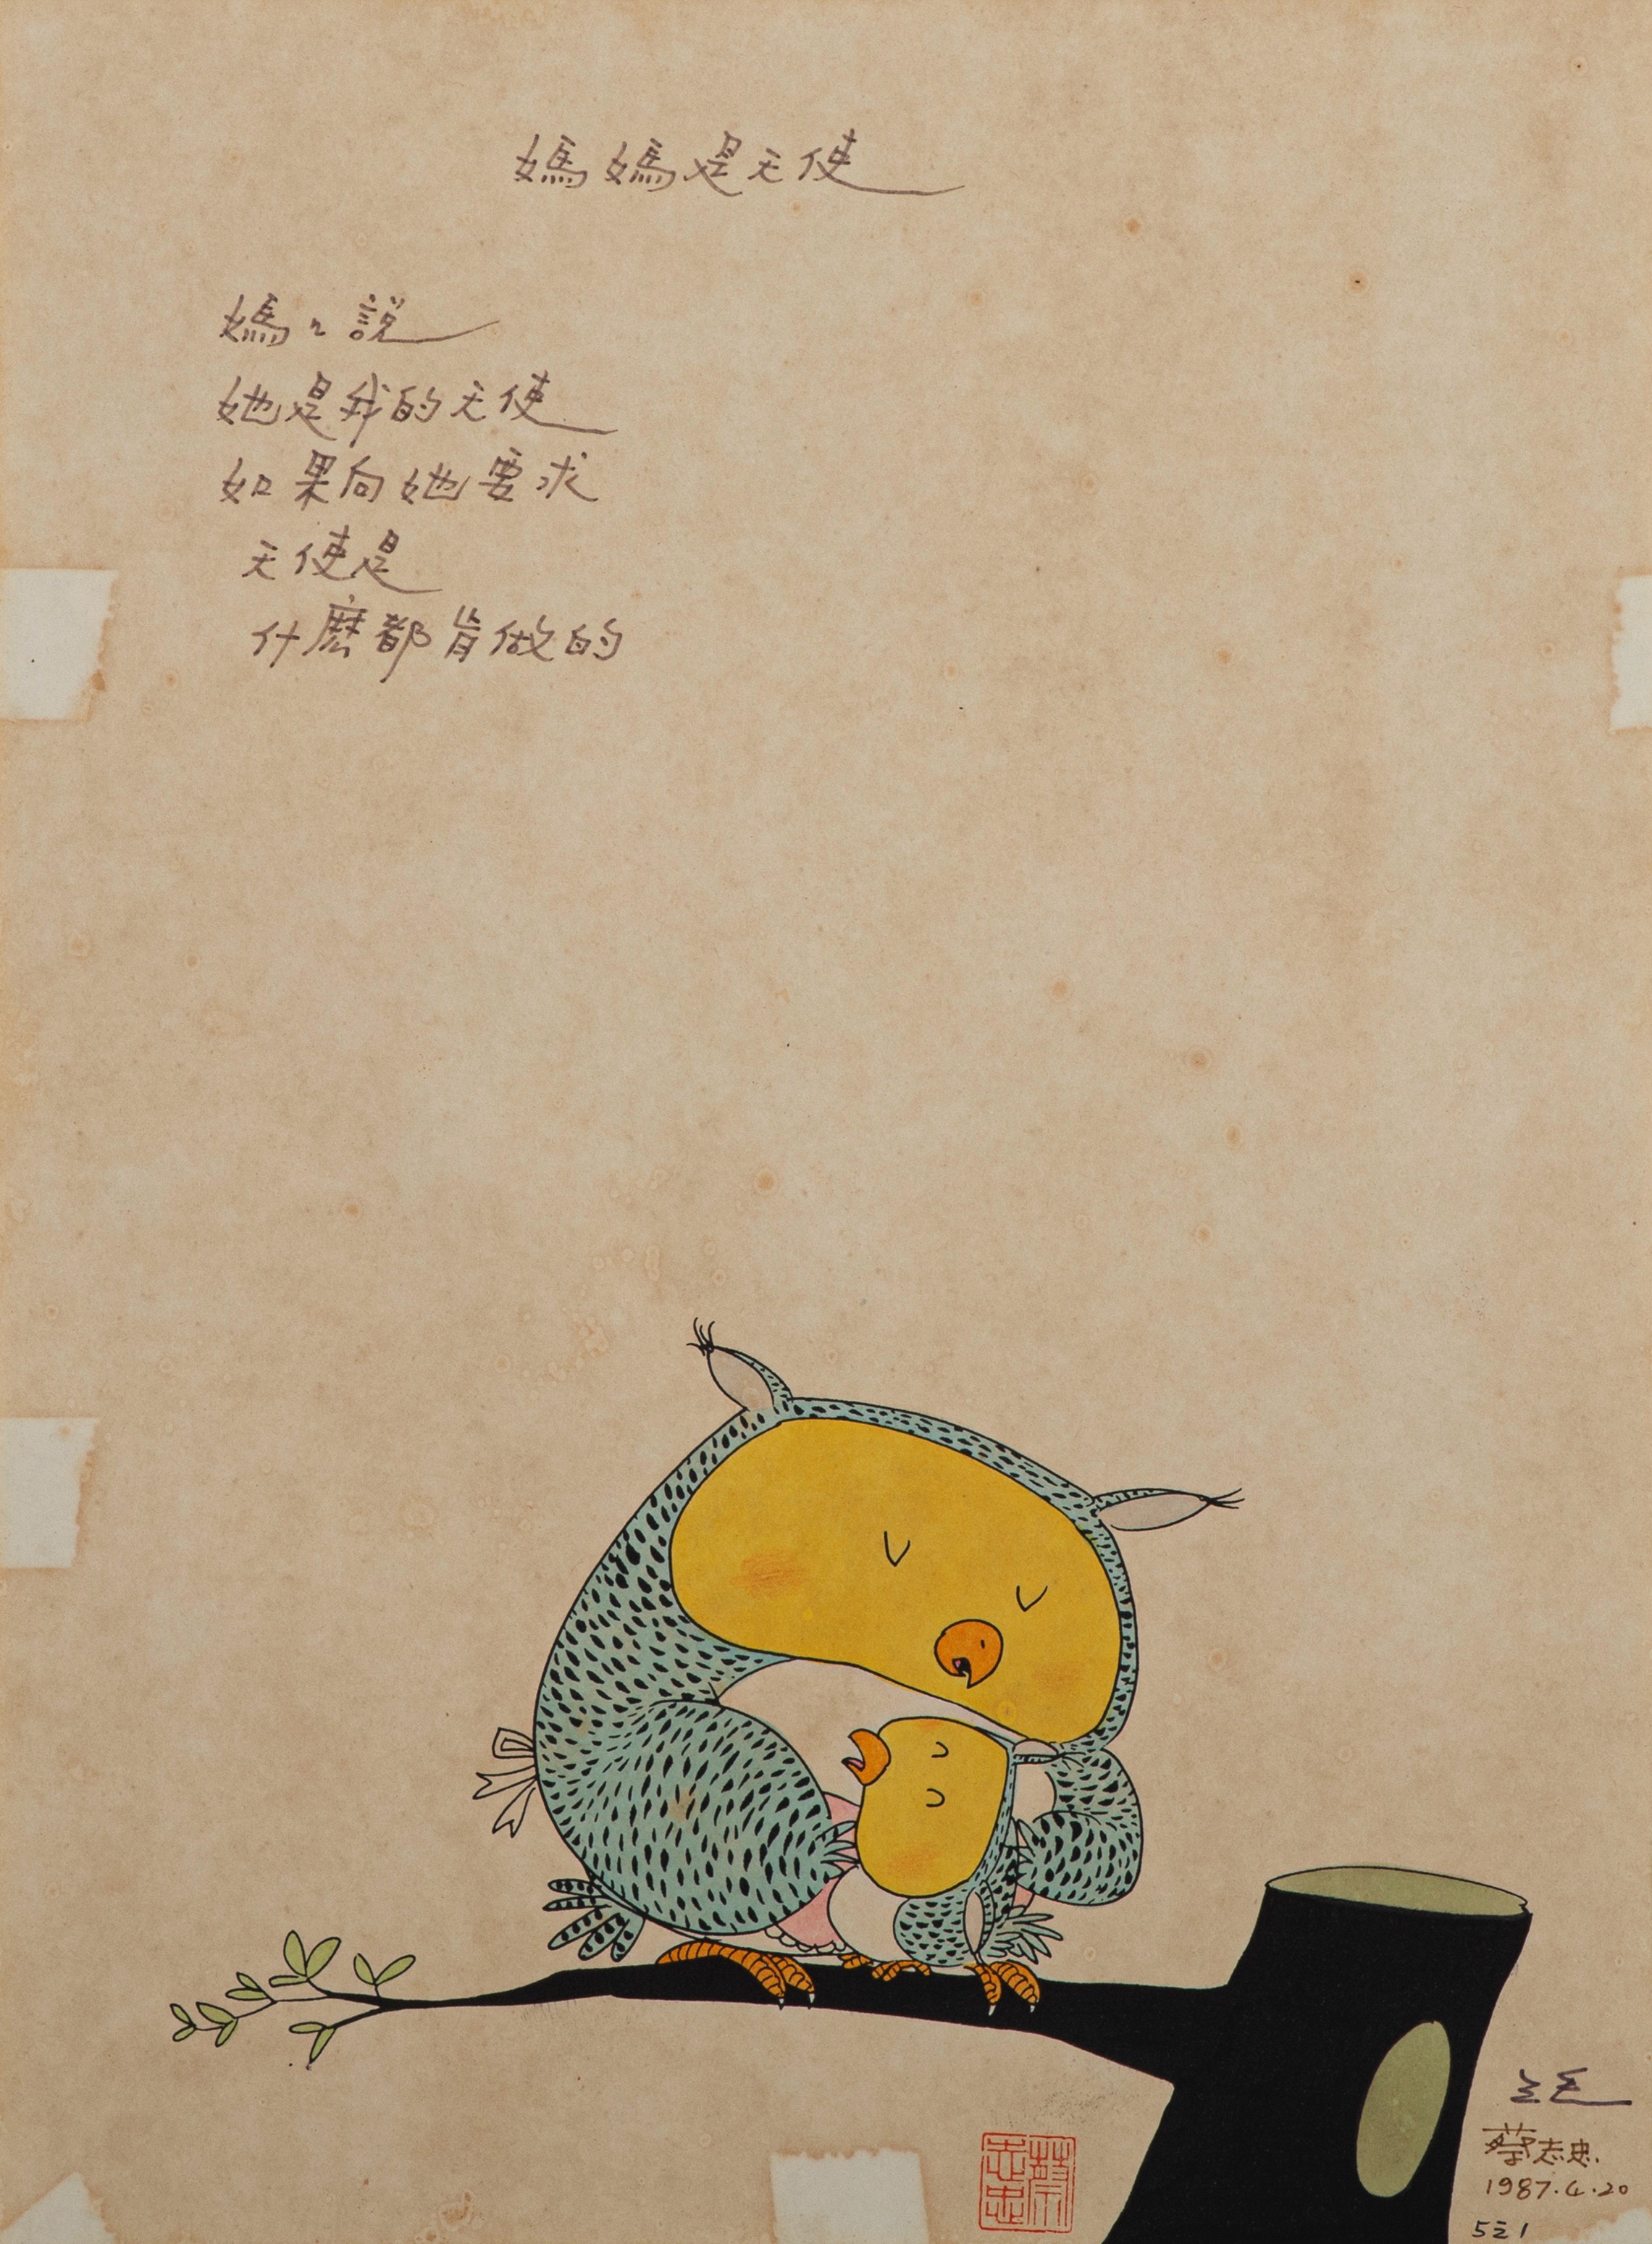 媽媽是天使
媽々説
她是我的天使
如果向她要求
天使是
什麽都肯做的
三毛
蔡志忠
1987.4.20
5之1
蔡志忠